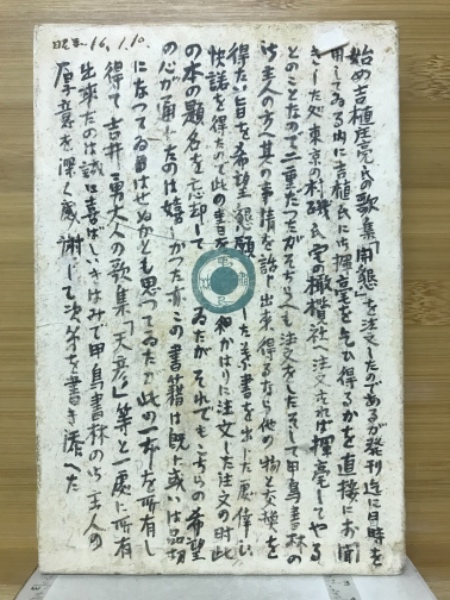 昭和16.1.10.
始め吉植庄亮氏の歌集「開懇」を注文したのであるが発刊迄に日時を
用してゐる内に吉植氏に御揮毫を乞ひ得るかを直接にお聞
きした処東京の村磯氏宅の橄欖社へ注文すれば揮毫してやる
とのことなので二重だつたがそちらへも注文をしたそして甲鳥書林の
御主人の方へ其の事情を話し出来得るなら他の物と交換を
得たい旨を希望懇願した葉書を出した処偉い
快諾を得たので此の書を かはりに注文した注文の時此
の本の題名を忘却して ゐたがそれでもこちらの希望
の心が通じたのは嬉しかつた亦この書籍は既に或いは品切
になつてゐはせぬかとも思つてゐたが此の一本を所有し
得て吉井勇大人の歌集「天彦」等と一處に所有
出来たのは誠に喜ばしいきはみで甲鳥書林の御主人の
厚意を深く感謝して次第を書き添へた